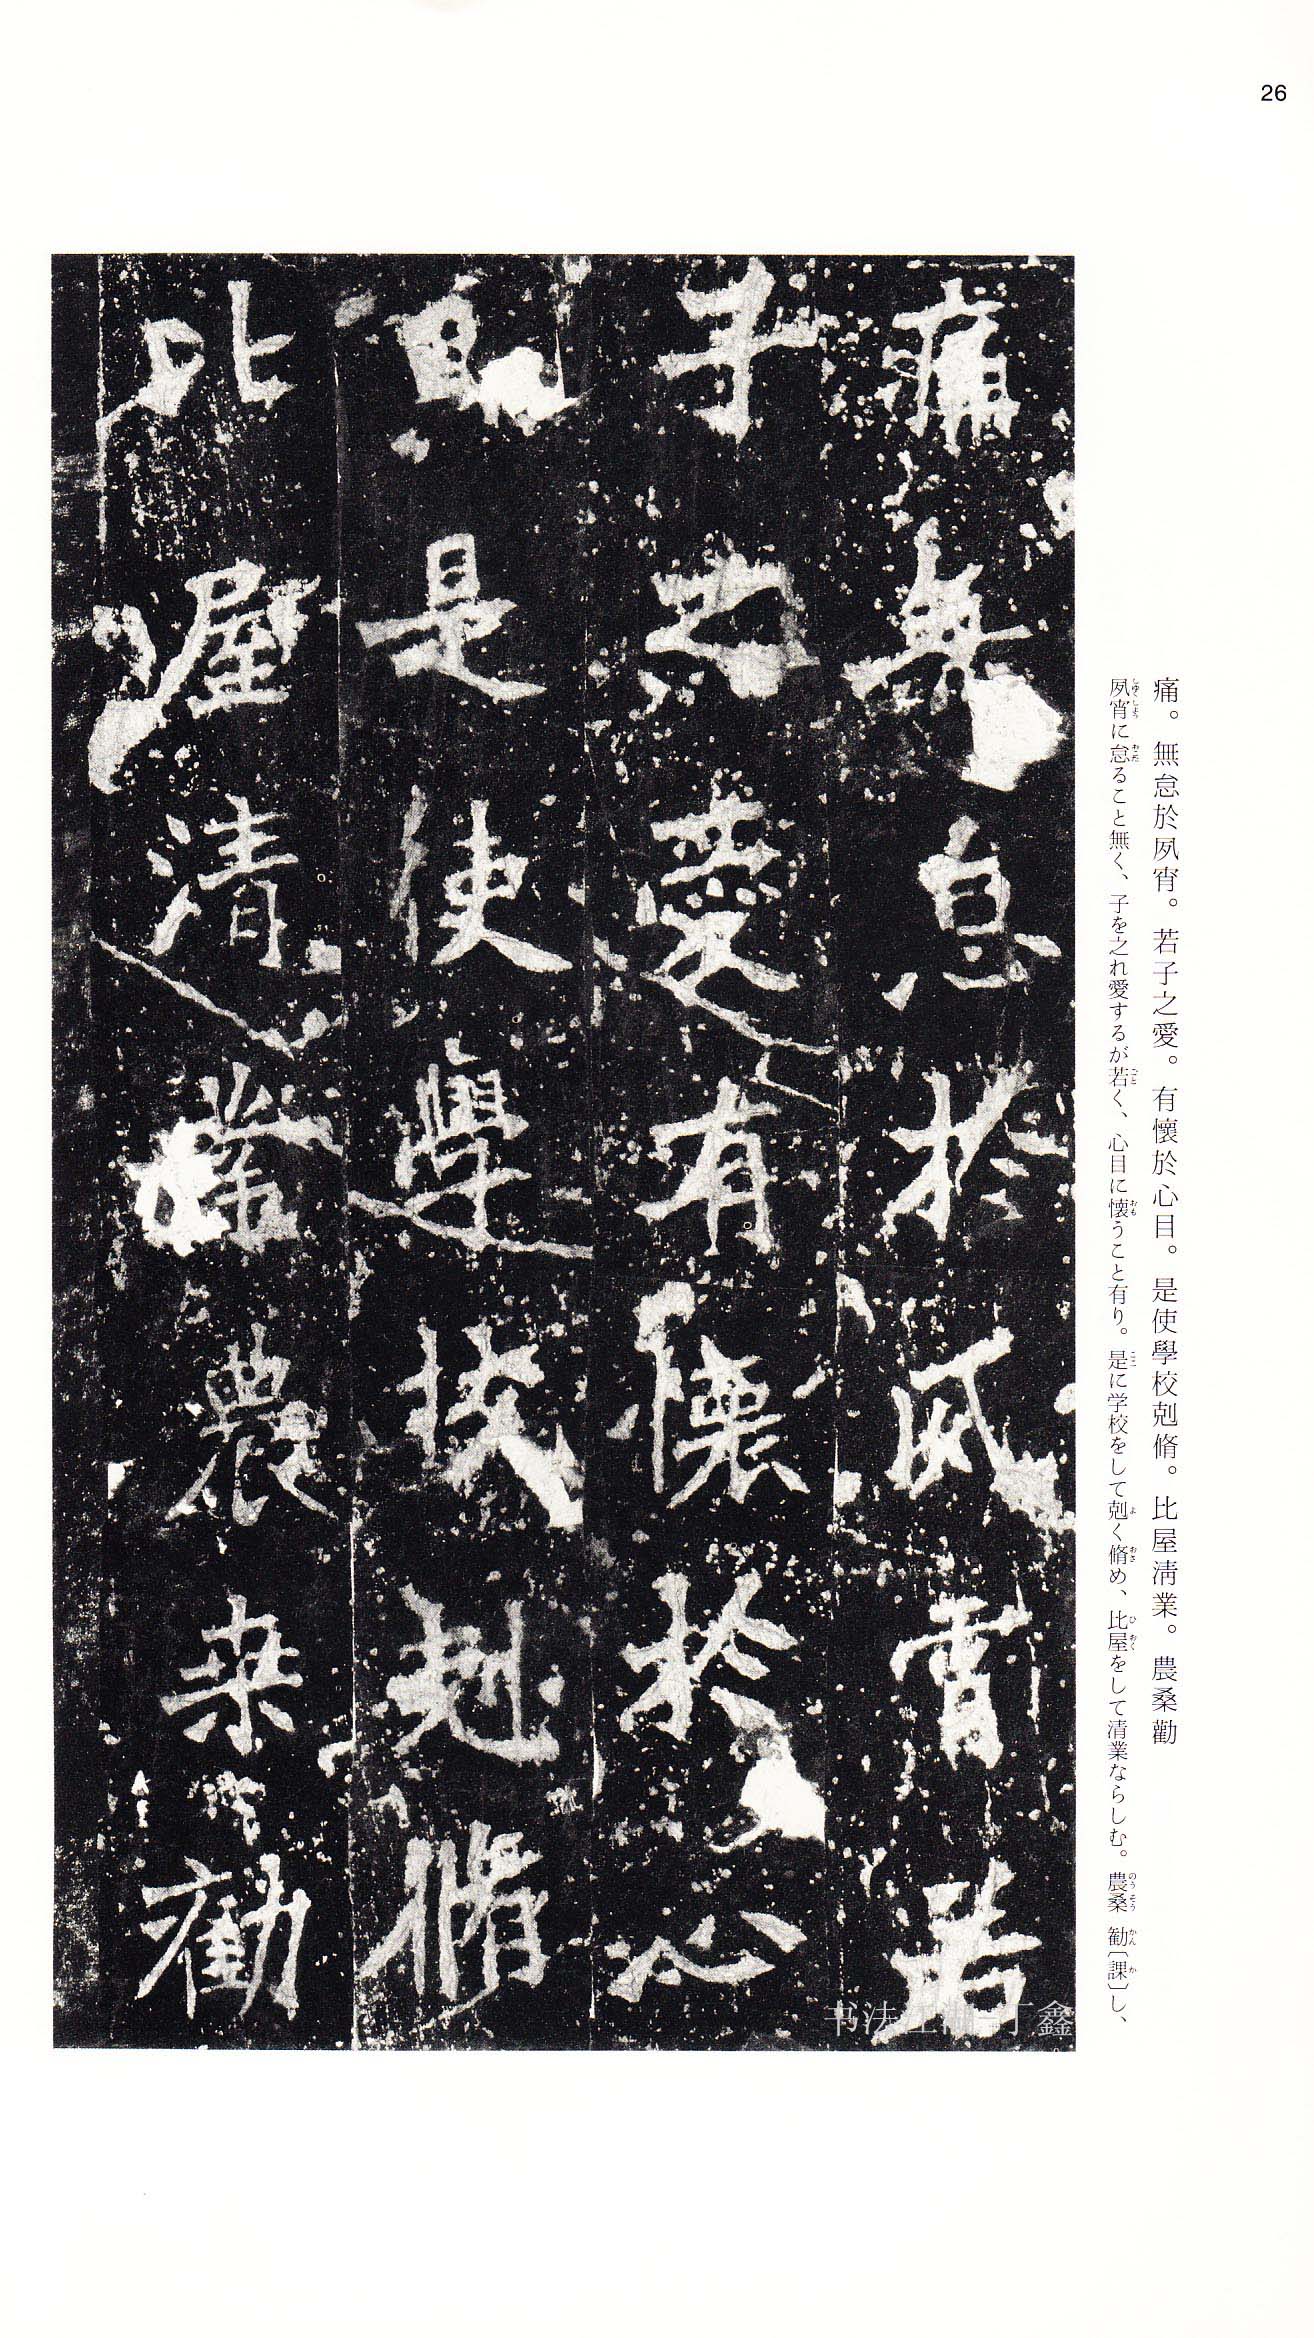 26
痛。無怠於夙宵。若子之愛。有懷於心目。是使學校剋脩。比屋清業。農桑勸
夙宵に怠ること無く、子を之れ愛するが若く、心目に懐うこと有り。是に学校をして剋く脩め、比屋をして清業ならしむ。農桑勧〔課〕し、
痛無怠於夙宵若
子之愛有懷於心
目是使學校剋脩
比屋清業農桑勸